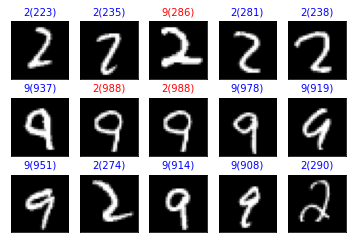 2(223) 2(235) 9(286) 2(281) 2(238)
2 2 2 2 2
9(937) 2(988) 2(988) 9(978) 9(919)
9 9 9 9 9
9(951) 2(274) 9(914) 9(908) 2(290)
9 2 9 9 2